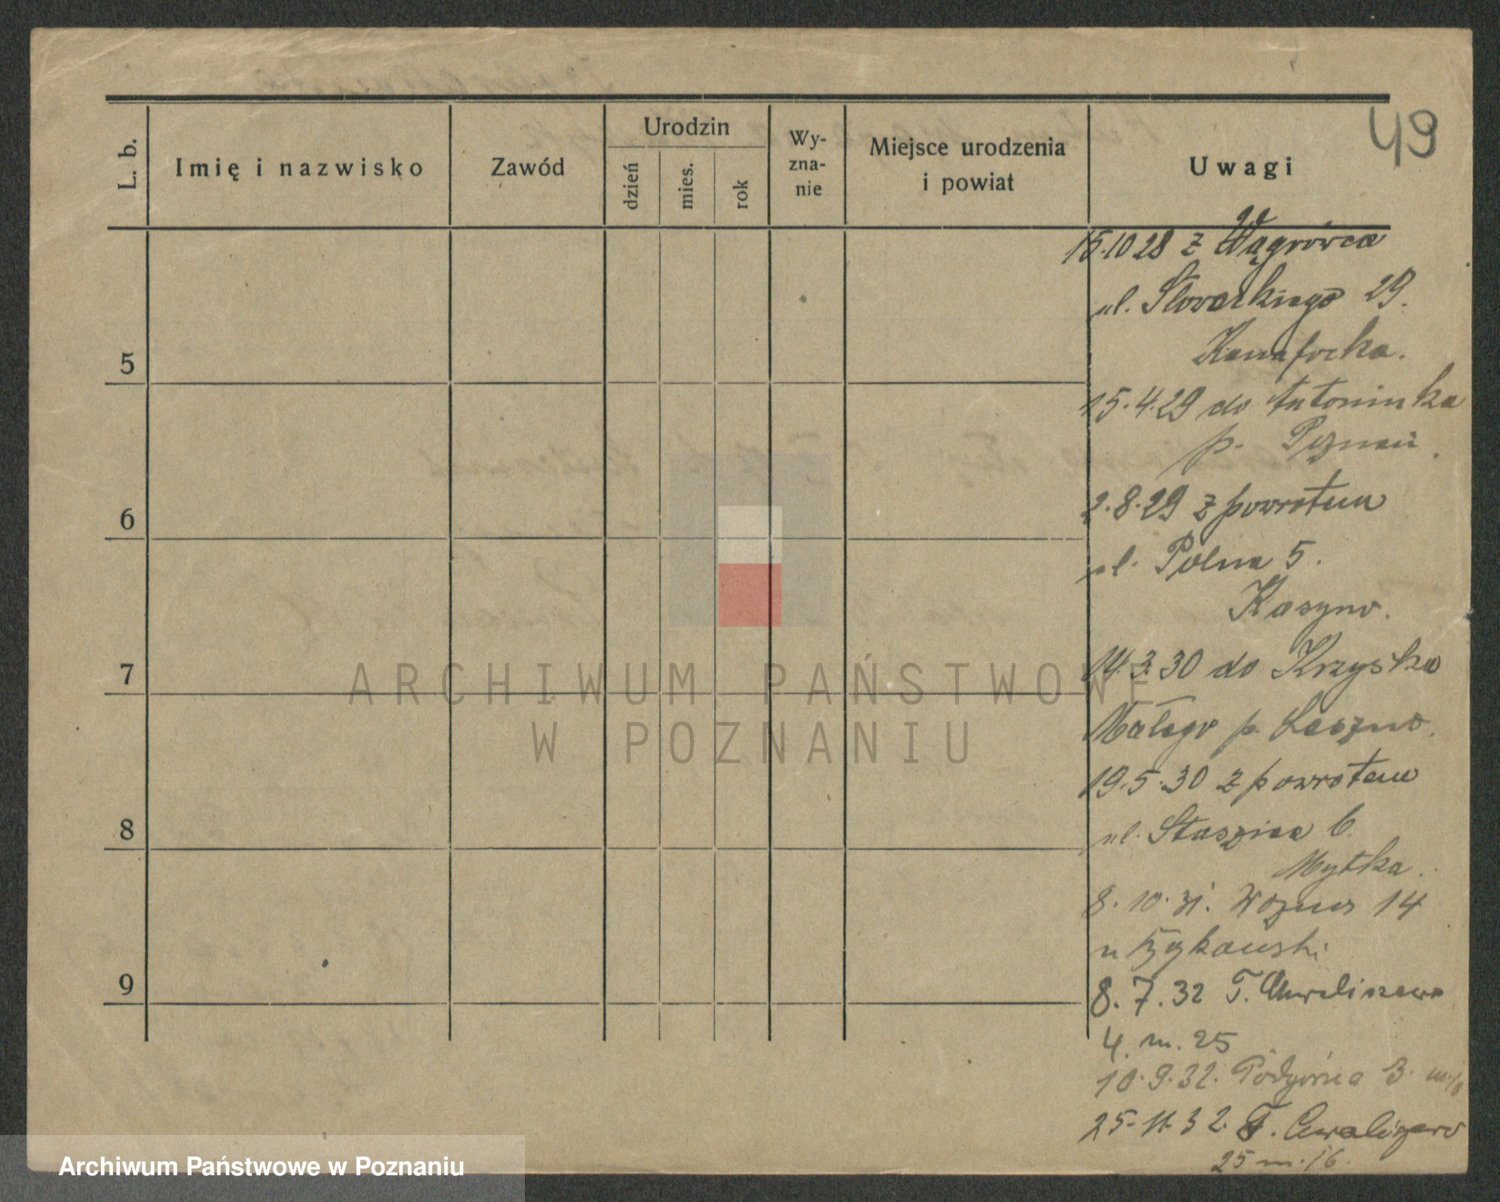 49
L. b.
Imię i nazwisko
Zawód
Urodzin
dzień
mies.
rok
Wy-
zna-
nie
Miejsce urodzenia
i powiat
Uwagi
15.10 28 z Wągrówca
ul. Słowackiego 29.
15.4.29 do Antoninka
p. Poznań.
2.8.29 z powrotem
ul. Polna 5.
14.3.30 do
Małego p. Leszno.
19.5.30 z powrotem
ul. Staszica 6.
Mytka.
8. 10. 31. 14
u
8. 7. 32 T. Chwaliszewo
4. m. 25
10.9.32. Podgórna 3.
25.11.32. T. Chwaliszewo
25 m. 16.
5
6
7
8
9
ARCHIWUM PAŃSTWOWE
W POZNANIU
Archiwum Państwowe w Poznaniu